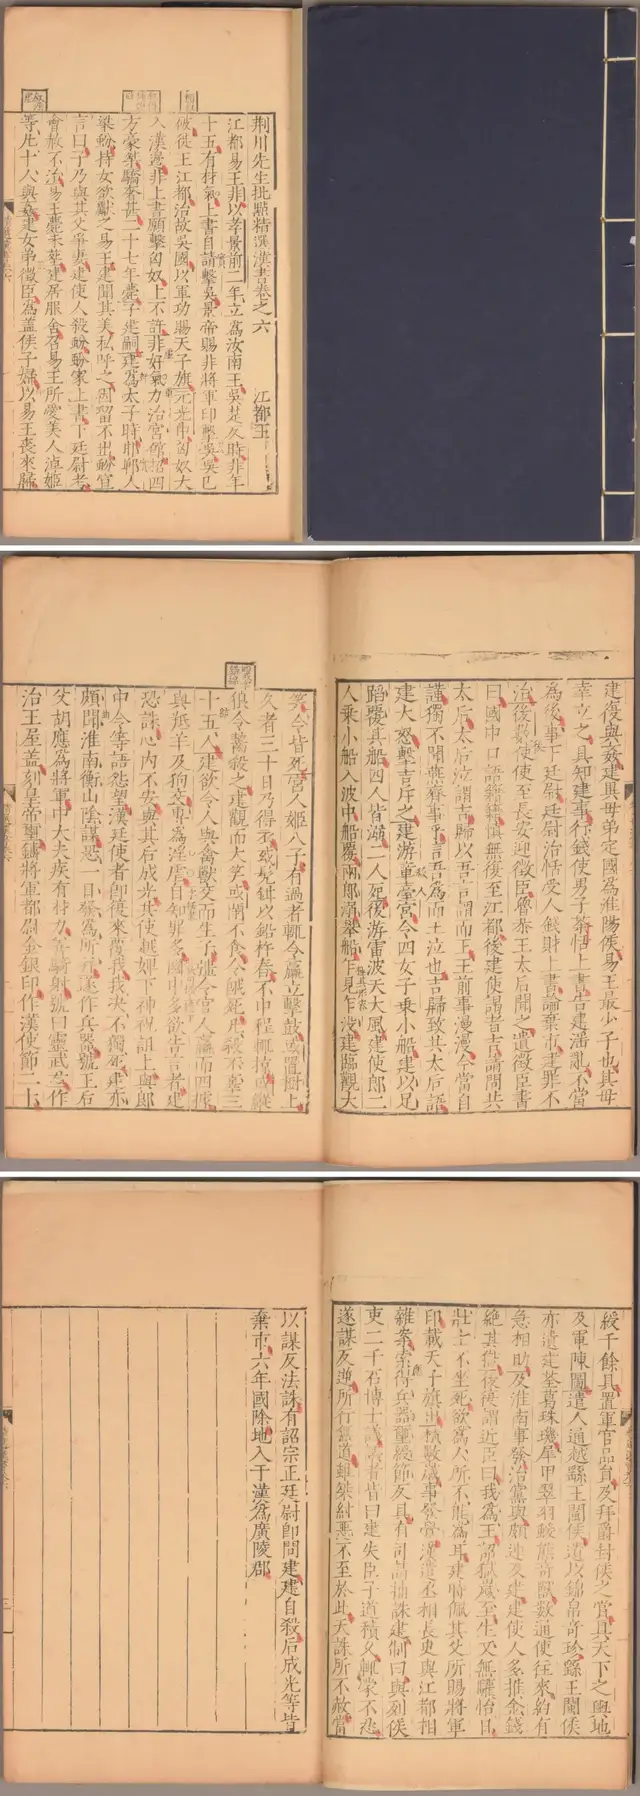 荆川先生批點精選漢書卷之六
江都王
江都易王非以孝景前二年立為汝南王吳楚反時非年
十五有材氣上書自請擊吳景帝賜非將軍印擊吳吳已
破徙王江都治故吳國以軍功賜天子旗元光中匈奴大
入漢邊非上書願擊匈奴上不許非好氣力治宮館招四
方豪桀驕奢甚二十七年薨子建嗣建為太子時邯鄲人
梁蚡持女欲獻之易王建聞其美私呼之因留不出蚡宣
言曰子乃與其父爭妻建使人殺蚡蚡家上書下廷尉考
會赦不治易王薨未葬建居服舍召易王所愛美人淖姬
等凡十人與姦建女弟徵臣為蓋侯子婦以易王喪來歸
建復與姦建異母弟定國為淮陽侯易王最少子也其母
幸立之具知建事行錢使男子荼恬上書告建淫亂不當
為後事下廷尉廷尉治恬受人錢財上書論棄市建罪不
治後數使使至長安迎徵臣魯恭王太后聞之遺徵臣書
曰國中口語籍籍慎無復至江都後建使謁者吉請問共
太后太后泣謂吉歸以吾言謂而王王前事漫漫今當自
謹獨不聞燕齊事乎言吾為而王泣也吉歸致共太后語
建大怒擊吉斥之建游章臺宮令四女子乘小船建以足
蹈覆其船四人皆溺二人死後游雷波天大風建使郎二
人乘小船入波中船覆兩郎溺攀船乍見乍沒建臨觀大
笑令皆死宮人姬八子有過者輒令臝立擊鼓或置樹上
久者三十日乃得衣或髡鉗以鉛杵舂不中程輒掠或縱
狼令齧殺之建觀而大笑或閉不食令餓死凡殺不辜三
十五人建欲令人與禽獸交而生子彊令宮人臝而四據
與羝羊及狗交專為淫虐自知罪多國中多欲告言者建
恐誅心內不安與其后成光共使越婢下神祝詛上與郎
中令等語怨望漢廷使者即復來覆我我決不獨死建亦
頗聞淮南衡山陰謀恐一日發為所并遂作兵器號王后
父胡應為將軍中大夫疾有材力善騎射號曰靈武君作
治屋蓋刻皇帝璽鑄將軍都尉金銀印作漢使節二十
綬千餘具置軍官品員及拜爵封侯之賞具天下之輿地
及軍陳圖遣人通越繇王閩侯遺以錦帛奇珍繇王閩侯
亦遺建荃葛珠璣犀甲翠羽蝯熊奇獸數通使往來約有
急相助及淮南事發治黨與頗連及建建使人多推金錢
絕其獄後復謂近臣曰我為王詔獄歲至生又無驩怡日
壯士不坐死欲為人所不能為耳建時佩其父所賜將軍
印載天子旗出積數歲事發覺漢遣丞相長史與江都相
雜案索得兵器璽綬節反具有司請捕誅建制曰與列侯
吏二千石博士議議者皆曰建失臣子道積久輒蒙不忍
遂謀反逆所行無道雖桀紂惡不至於此天誅所不赦當
以謀反法誅有詔宗正廷尉即問建建自殺后成光等皆
棄市六年國除地入于漢為廣陵郡